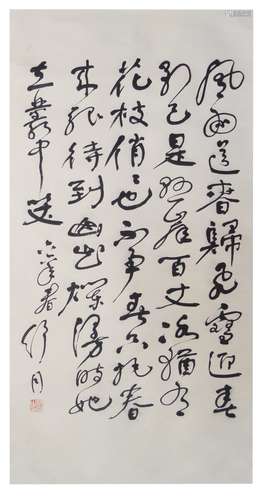 風雨送春歸飛雪迎春
到已是懸崖百丈冰猶有
花枝俏〻也不争春只把春
来报待到山花爛漫時她
在叢中笑 年春 舒同